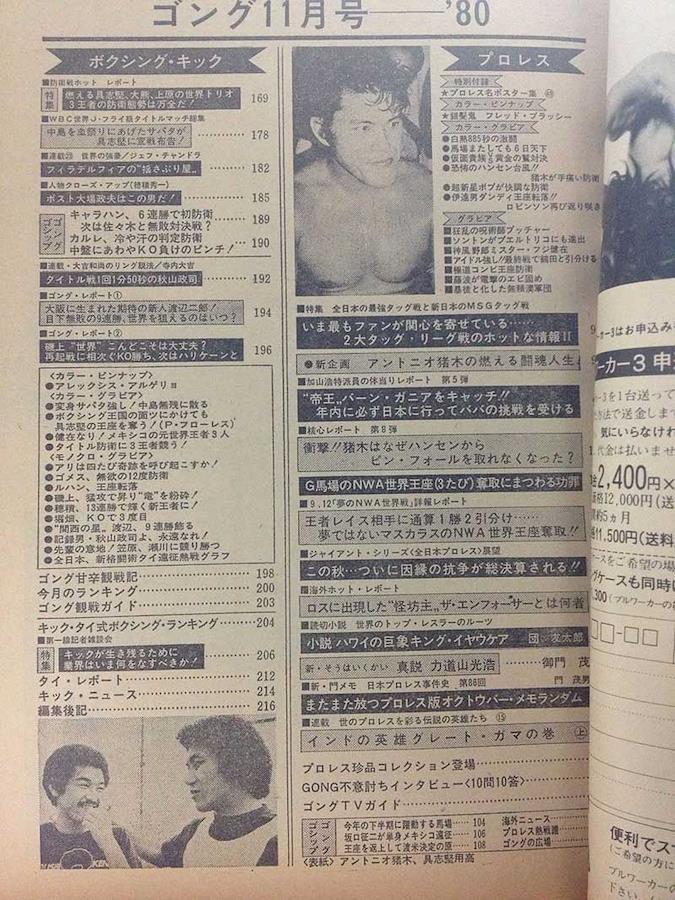 ゴング11月号——'80
ボクシング・キック
■防衛戦ホット レポート
特集
燃える具志堅、大熊、上原の世界トリオ
3王者の防衛態勢は万全だ!
169
■WBC世界J・フライ級タイトルマッチ総集
中島を血祭りにあげたサパタが
具志堅に宣戦布告!
178
■連載㉓ 世界の強豪/ジェフ・チャンドラ
フィラデルフィアの“揺さぶり屋„
182
■人物クローズ・アップ(穂積秀一)
ポスト大場政夫はこの男だ!
185
ゴングゴシップ
キャラハン、6連勝で初防衛
次は佐々木と無敗対決?
189
カルレ、冷や汗の判定防衛
中盤にあわやKO負けのピンチ!
190
■連載・大吉和尚のリング説法/寺内大吉
タイトル戦1回1分50秒の秋山政司
192
■ゴング・レポート①
大阪に生まれた期待の新人渡辺二郎!
目下無敗の9連勝、世界を狙えるのはいつ?
194
■ゴング・レポート②
磯上“世界”こんどこそは大丈夫?
再起戦に相次ぐKO勝ち、次はハリケーンと
196
〈カラー・ピンナップ〉
●アレックシス・アルゲリョ
〈カラー・グラビア〉
●変身サパタ強し!中島無残に散る
●ボクシング王国の面ツにかけても
具志堅の王座を奪う!(P・フローレス)
●健在なり!メキシコの元世界王者3人
●タイトル防衛に3王者競う!
〈モノクロ・グラビア〉
●アリは四たび奇跡を呼び起こすか!
●ゴメス、無欲の12度防衛
●ルハン、王座転落
●磯上、猛攻で昇り“竜”を粉砕!
●穂積、13連勝で輝く新王者に!
●堀畑、KOで3度目
●“関西の星”渡辺、9連勝飾る
●記録男・秋山政司よ、永遠なれ!
●先輩の意地!笠原、瀬川に競り勝つ
●全日本、新格闘術タイ遠征熱戦グラフ
ゴング甘辛観戦記 198
今月のランキング 200
ゴング観戦ガイド 203
キック・タイ式ボクシング・ランキング 204
■第一線記者雑談会
特集
キックが生き残るために
業界はいま何をなすべきか!
206
タイ・レポート 212
キック・ニュース 214
編集後記 216
プロレス
特別付録
★プロレス名ポスター集 ㊺
カラー・ピンナップ
★銀髪鬼 フレッド・ブラッシー
カラー・グラビア
●白熱885秒の激闘
●馬場またしても6日天下
●仮面貴族と黄金の鷲対決
●恐怖のハンセン台風!!
猪木が手痛い防衛
●超新星ボブが快調な防衛
●伊達男ダンディ王座転落!!
ロビンソン再び返り咲き
グラビア
■狂乱の呪術師ブッチャー
■ソントンがプエルトリコにも進出
■神風野郎ミスター・フジ健在
■アイドル強し!!最終戦で鶴田と引分ける
■極道コンビ王座防衛
■藤波が電撃のエビ固め
■暴徒と化した無頼漢軍団
■特集 全日本の最強タッグ戦と新日本のMSGタッグ戦
いま最もファンが関心を寄せている……
2大タッグ・リーグ戦のホットな情報!!
●新企画 アントニオ猪木の燃える闘魂人生
■加山浩特派員の体当りレポート 第5弾
“帝王„バーン・ガニアをキャッチ!!
年内に必ず日本に行ってババの挑戦を受ける
■核心レポート 第8弾
衝撃!!猪木はなぜハンセンから
ピン・フォールを取れなくなった?
G馬場のNWA世界王座(3たび)奪取にまつわる功罪
■9.12「夢のNWA世界戦」詳報レポート
王者レイス相手に通算1勝2引分け……
夢ではないマスカラスのNWA世界王座奪取!!
■ジャイアント・シリーズ〈全日本プロレス〉展望
この秋…ついに因縁の抗争が総決算される!!
■海外ホット・レポート
ロスに出現した“怪坊主„ザ・エンフォーサーとは何者
■読切小説 世界のトップ・レスラーのルーツ
小説 ハワイの巨象キング・イヤウケア 団 友太郎
新・そうはいくかい 真説 力道山光浩 御門 茂
■新・門メモ 日本プロレス事件史 第86回 門 茂男
またまた放つプロレス版オクトウバー・メモランダム
■連載 世のプロレスを彩る伝説の英雄たち ⑮
インドの英雄グレート・ガマの巻 上
プロレス珍品コレクション登場
GONG不意討ちインタビュー〈10問10答〉
ゴングTVガイド
ゴングゴシップ
今年の下半期に躍動する馬場 104
坂口征二が単身メキシコ遠征 106
王座を返上して渡米決定の原 108
海外ニュース
プロレス熱戦譜
ゴングの広場
〈表紙〉アントニオ猪木、具志堅用高
ーカー3はお申込み
ーカー3 申
ー3を1台送って
方法で送金しま
、気にいらなけれ
代金は払いませ
2,400円×
価格12,000円(送
約5ヵ月
11,500円(送料
ースをご希望の場
グケースも同時
,300(ブルワーカーの
便利でス
(ご希望の方に
ブルワーカーの
ださい。(